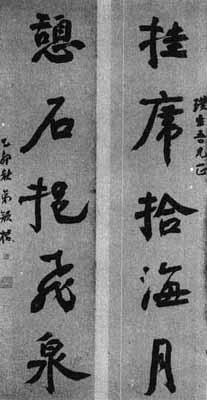 璞生吾兄正
挂席拾海月
憩石挹飛泉
乙卯秋弟